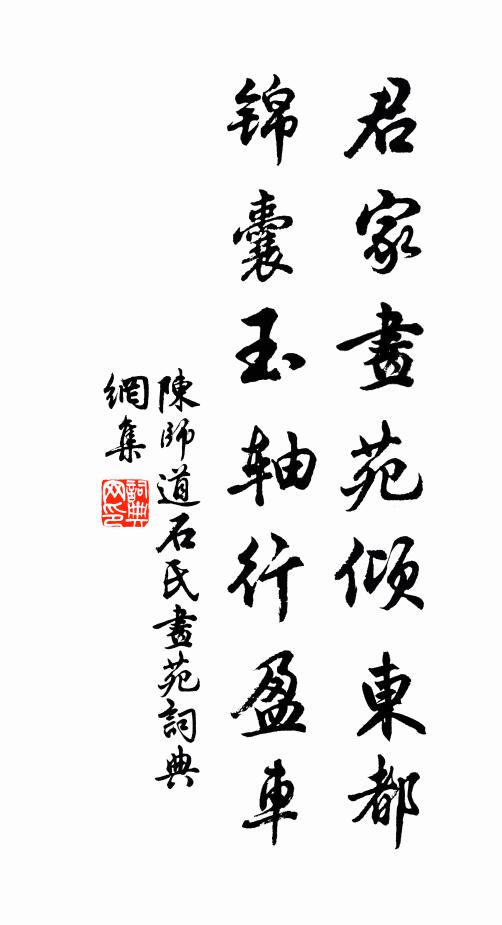 君家畫苑傾東都
锦囊玉轴行盈車
陳師道石氏畫苑詞典
網集
詞典網印